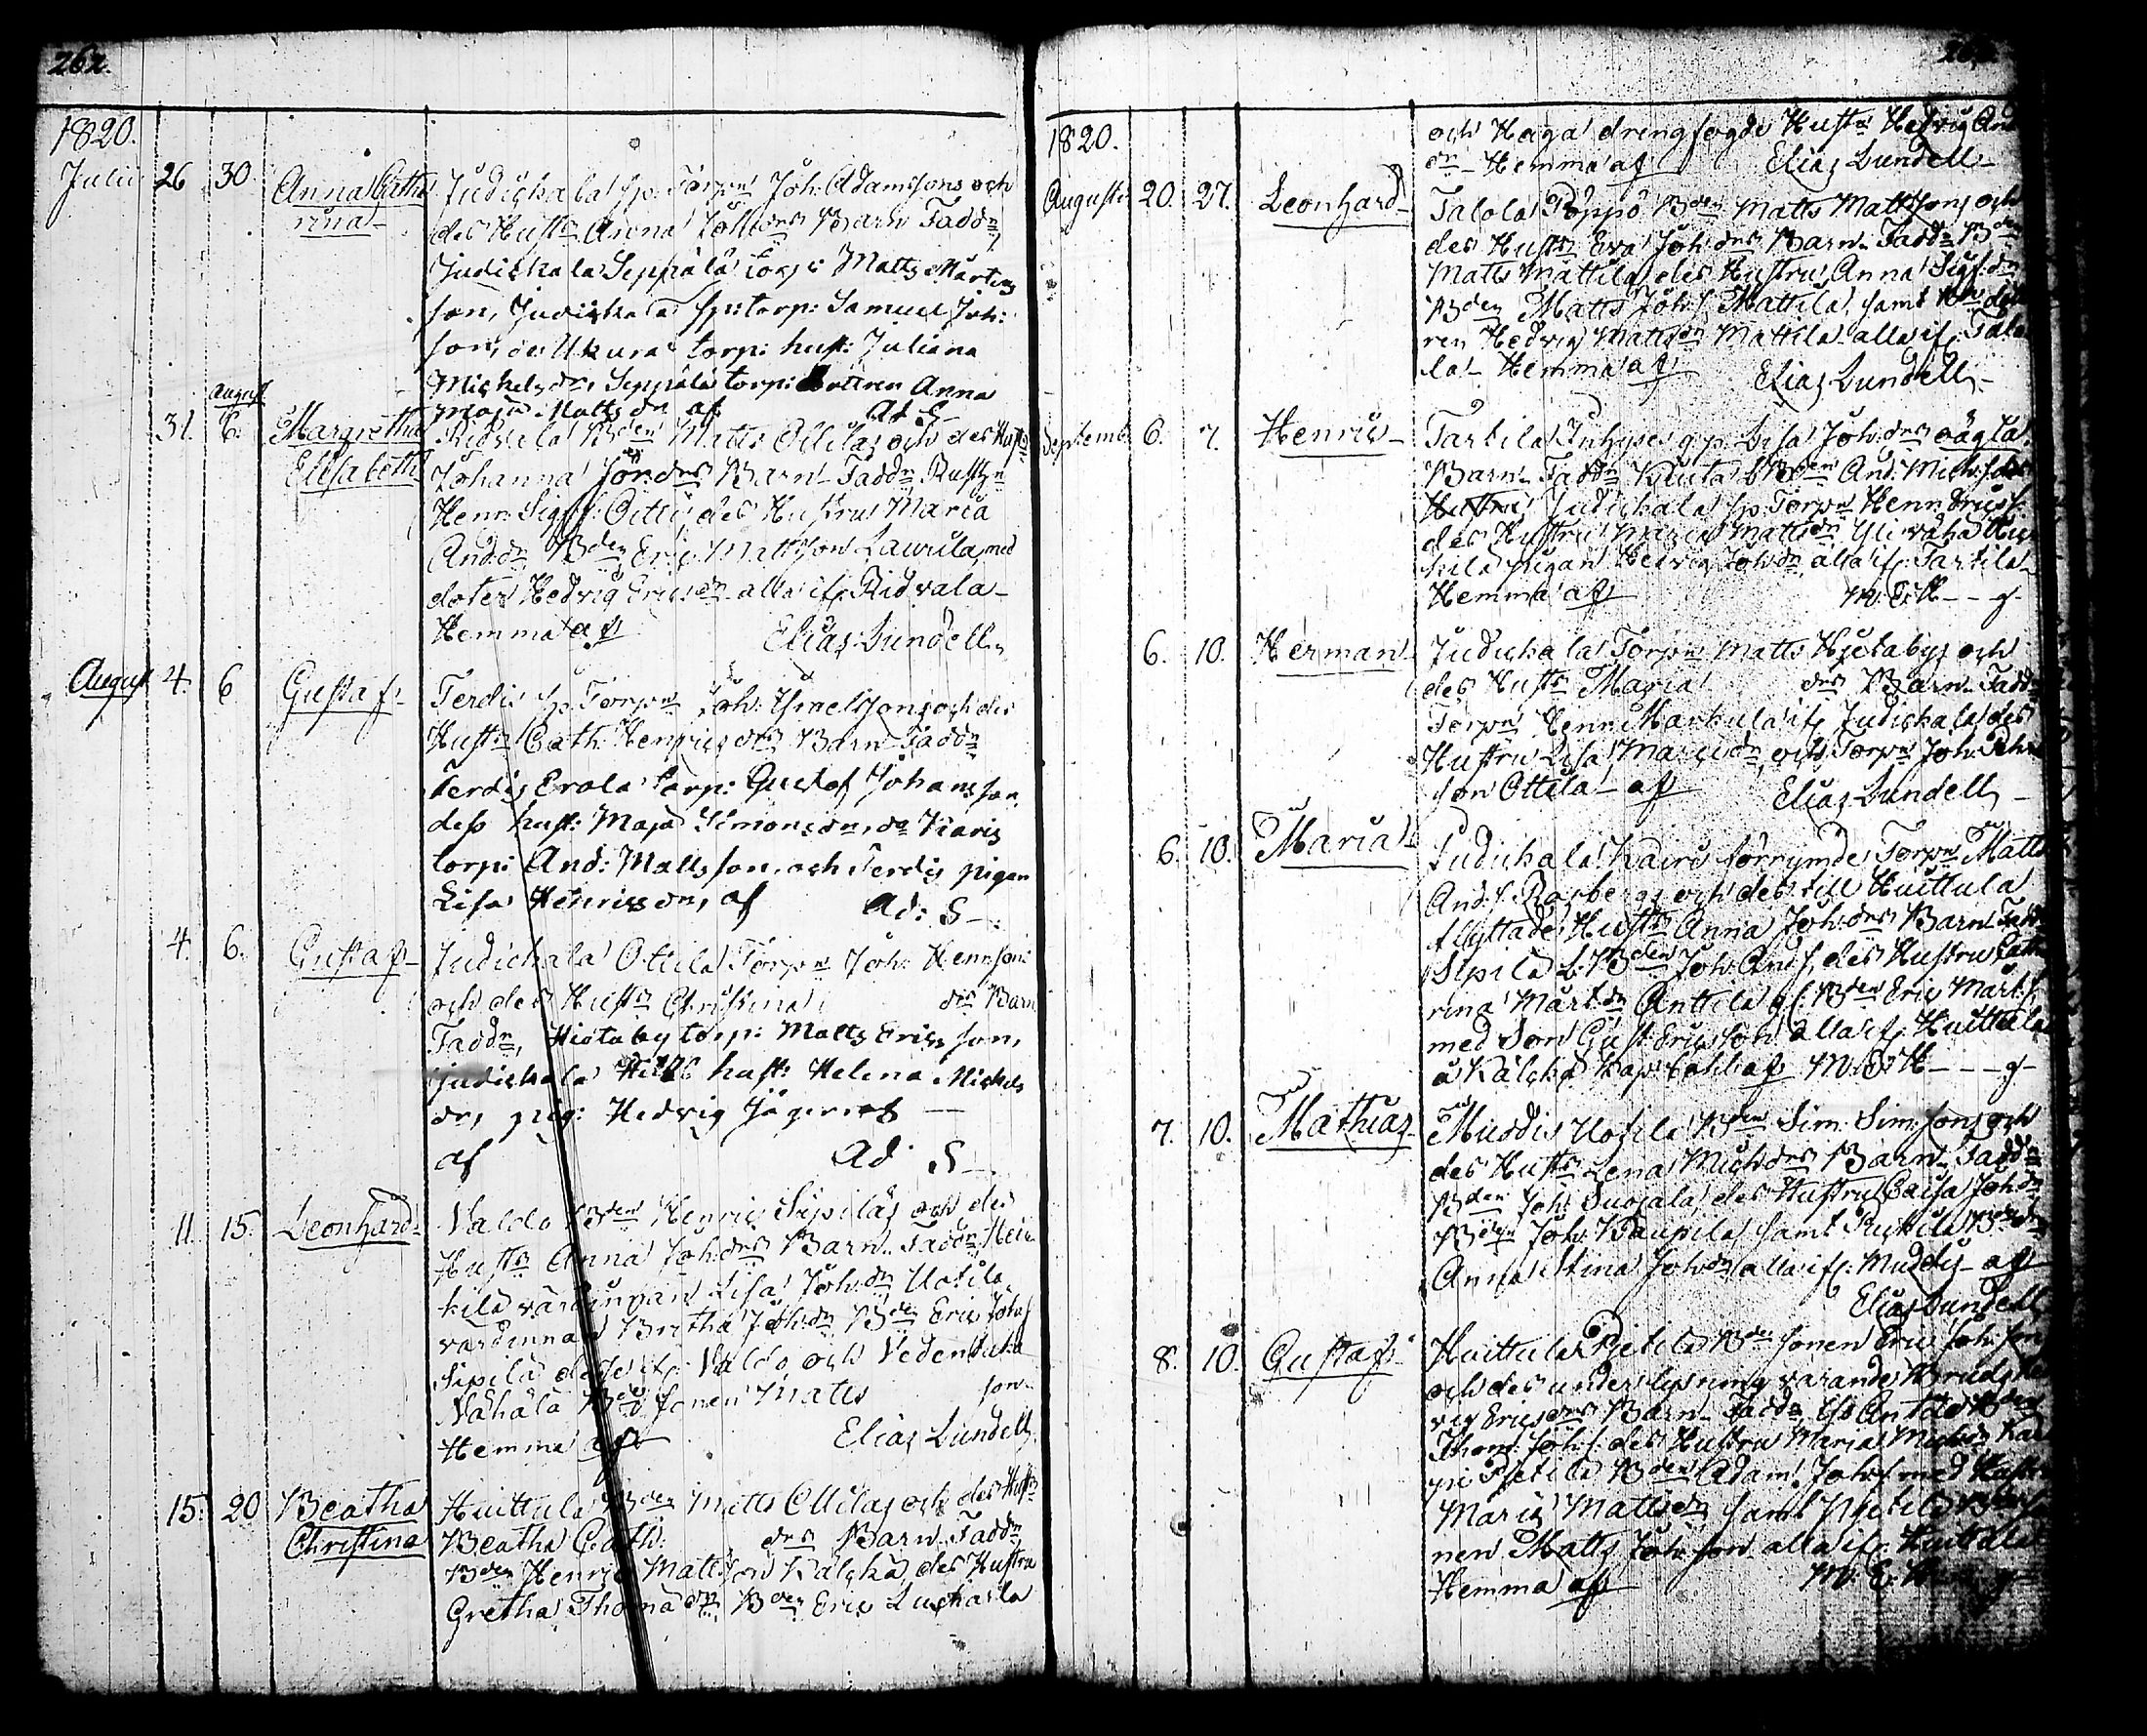 262.
1820.
Julii 26 30 Anna Catha Judickala sp. Torpn Joh: Adamssons och
rina des Hustr Anna dotr Barn Faddr
Judickala Seppälä torp: Matts Mårtens
son, Judickala sp: torp: Samuel Joh:
son, de Ukura torp: hust: Juliana
Michelsdr, Seppälä torp: dottren Anna
Maja Mattsdr af Ad S
August
31. 6. Margretha Ridvala Bden Matts Ollilas och des Hustr
Elisabeth Johanna Jör: drs Barn Faddr Rusth
Henr: Sigf: Oitti, des Hustru Maria
And:dr Bden Eric Mattsson Laurila, med
doter Hedvig Ericsdr alla if: Ridvala
Hemma af Elias Lundell
August 4. 6 Gustaf Terdis sp. Torpn Joh: Ismelssons och des
Hustr Cath: Henricsdrs Barn Faddr
Terdis Erola torp: Gustaf Johansson
dess hust: Maja Simonsdr, da Karis
torp: And: Mattsson, och Terdis pigan
Lisa Henrissdr, af Ad: S
4. 6. Gustaf Judickala Ottila Torpn Joh: Henr:sons
och des Hustr Christina drs Barn
Faddr, Hietaby torp: Matts Ericsson,
Judickala hust: Helena Michels
dr, pig: Hedvig Jägerrot
af Ad S
11. 15. Leonhard Valdo Bden Henric Sipiläs och des
Hustr Anna Joh:drs Barn Faddr Hei
kilä värdinnan Lisa Joh:dr Uotila
värdinnan Britha Joh:dr Bden Eric Johs
Sipilä desse if: Valdo och Vedentaka
Vähälä Bde sonen Matts son
Hemma af Elias Lundell
15. 20 Beatha Huittula Bden Matts Ollilas och des Hustr
Christina Beatha Cath: drs Barn Faddr
Bden Henric Mattsson Kälckä, des Hustru
Gretha Thomadr Bden Eric Luckarla
1820.
och Haga drengfogde Hustr Hedvig And
dr Hemma af Elias Lundell
Augusti 20. 27. Leonhard Talola Poppo Bden Matts Mattssons och
des Hustr Eva Joh:drs Barn Faddr Bden
Matts Mattila, des Hustru Anna Sigf:dr
Bden Matts Joh:s Mattila samt
ren Hedvig Mattsdr Mattila alla if: Talo
la Hemma af Elias Lundell
Septemb. 6. 7. Henric Tarkila Inhyses q.p. Lisa Joh:drs oägta
Barn Faddr Kuuta Bden And: Mich:s des
Hustru Judickala sp: Torpn Henr: Erics:
des Hustru Maria Mattsdr
kilä pigan Hedvig Joh:dr alla if: Tarkila
Hemma af M: E: H - - g
6. 10. Herman Judickala Torpn Matts Hietabys och
des Hustr Maria drs Barn Faddr
Torpn Henr: Markula if: Judickala des
Hustru Lisa Maricsdr och Torpn Joh:
son Ottila af Elias Lundell
6. 10. Maria Judickala förrymde Torpn Matts
And:s Rosbergs och des till Huittula
flyttade Hustr Anna Joh:drs Barn Faddr
Sipilä Bden Joh: And:s, des Hustru Catha
rina Mårt:dr Anttila Bden Eric Mårt:s
med Son Gust: Ericsson alla if: Huittula
å Kälckä af M: E: H - - - g
7. 10. Mathias Muddis Uotila Bden Sim: Sim:sons och
des Hustr Lena Mich:drs Barn Faddr
Bden Joh: Suojala, des Hustru Caisa Joh:dr
Bden Joh: Kaupila samt
Anna Stina Joh:dr alla if: Muddis af
Elias Lundell
8. 10. Gustaf Huittula Pietilä Bde sonen Eric Joh:sons
och des under lysning varande Brud Hed
vig Ericsdrs Barn Faddr Bden
Thom: Joh:s: des Hustru Maria Mich:dr
Pietilä Bden Adam Joh:s med Hustr
Maria Mattsdr samt Pietilä Bde so
nen Matts Joh:son alla if: Huittula
Hemma af M: E: H g